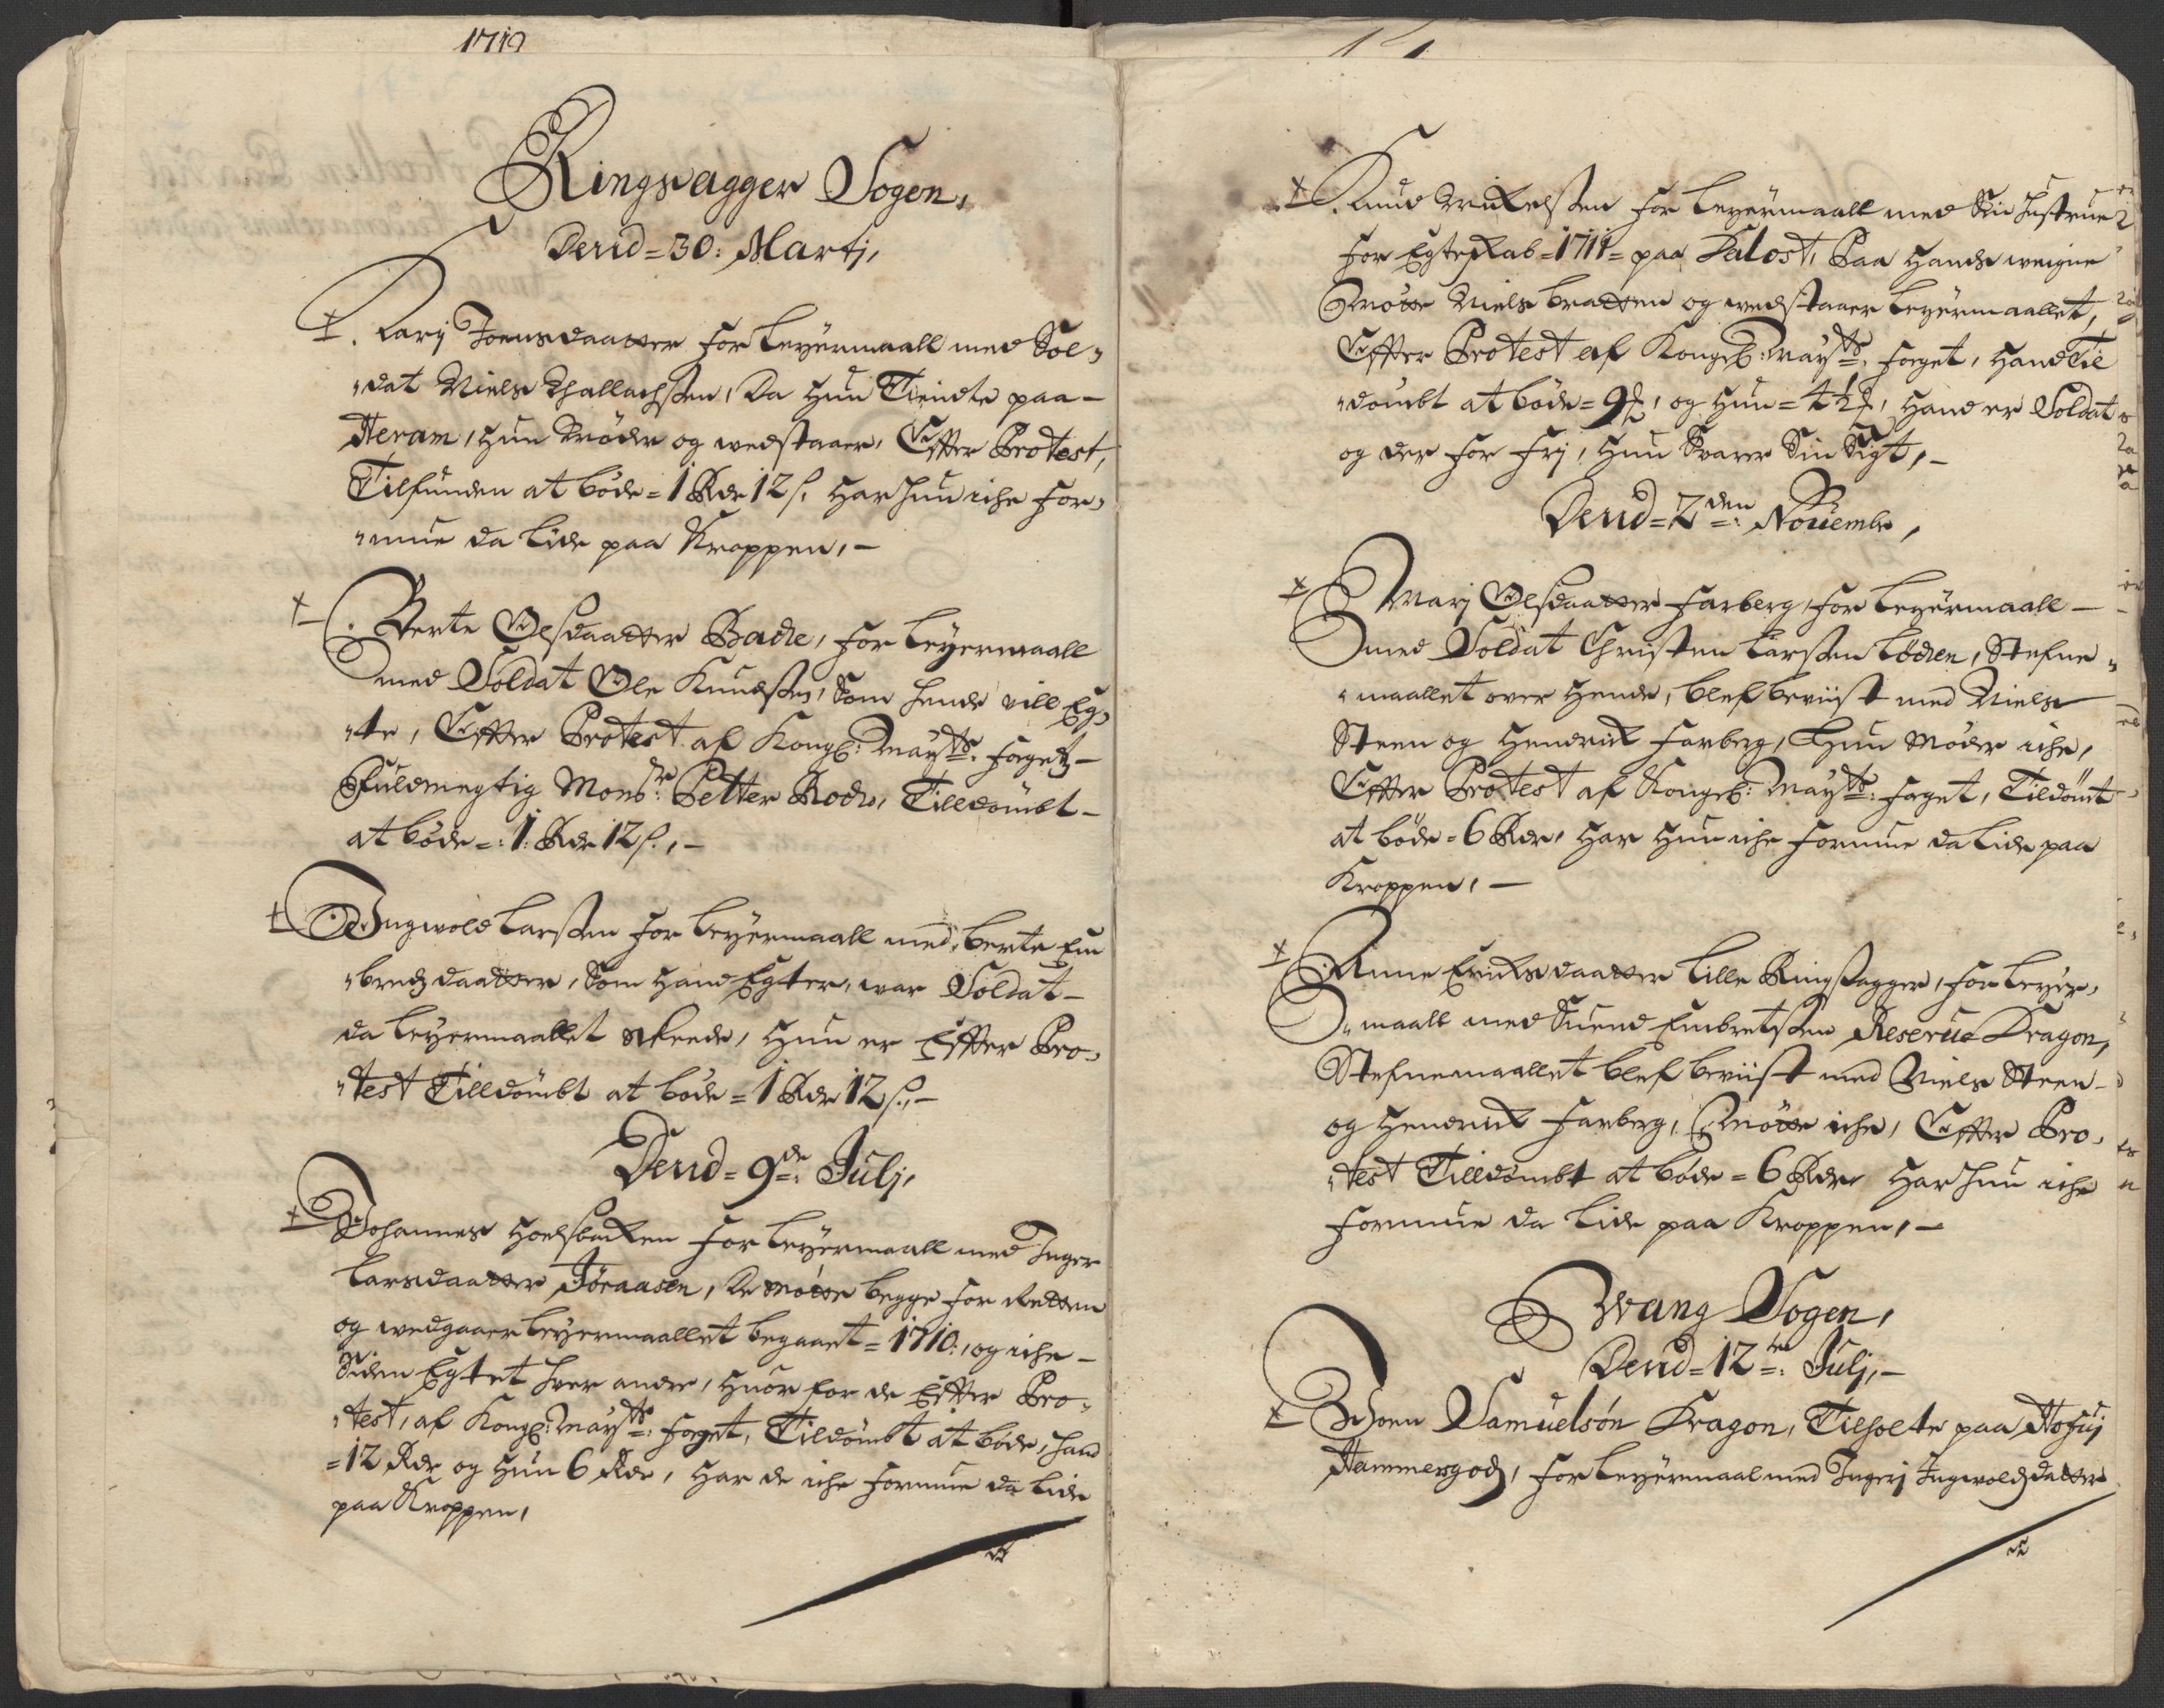 1712
Ringsagger Sogen,
Dend = 30: Martj,
Karj Joensdaatter for leyermaall med Sol„
„dat Niels Thallachssen, da hun Tiendte paa –
Heram, hun Møder og wedstaaer, Effter Protest,
Tilfunden at bøde = 1 Rdr 12 s. har hun iche for„
„mue da lide paa Kroppen, –
Berte Olsdaatter Bade, for leyermaall
med Soldat Ole Knudssen, som hende vill Eg„
„te, Effter Protest af Kongl: Mayts: fogetz –
Fuldmegtig Monsr: Petter Rode, Tilldømbt –
at bøde =: 1: Rdr 12 s., –
Ingwold larssen for leyermaall med berte Em
„bretz daatter, som hand Egter, war Soldat –
da leyermaallet skeede, hun er Effter Pro„
„test Tilldømbt at bøde = 1 Rdr 12 s., –
Dend = 9de: Julj,
Johannes Hoelsbachen for leyermaall med Inger
larsdaatter Jøraasen, de møtte begge for Retten
og wedgaaer leyermaallet begaaet = 1710:, og iche –
siden Egtet hver andre, huor for de Effter Pro„
„test, af Kongl: Mayts: foget, Tildømbt at bøde, hand
= 12 Rdr og hun 6 Rdr, har de iche formue da lide
paa Kroppen,
Knud Michelssen for leyermaall med sin hustrue
for Egteskab = 1711 = paa Falost, Paa hands weigne
Møtte Niels bratten og wedstaaer leyermaallet,
Effter Protest af Kongl: Mayts: foget, hand Til
„dømbt at bøde = 9 , og hun = 4½ , hand er Soldat
og der for frj, hun svarer sin sigt, –
Dend = 2den: Nouembr,
Marj Olsdaatter Farberg, for leyermaall –
med Soldat Christen larssen lødien, Stefne„
„maallet over hende, blef beviist med Niels
Steen og Hendrich Farberg, Hun Møder iche,
Effter Protest af Kongl: Mayts: foget, Tildømt
at bøde = 6 Rdr, har hun iche formue da lide paa
Kroppen, –
Anne Erichsdaatter lille Ringsagger, for leyer„
„maall med Suend Embretssen Reserue Dragon,
Stefnemaallet blef beviist med Niels Steen –
og Hendrich Farberg, Møtte iche, Effter Pro„
„test Tilldømbt at bøde = 6 Rdr har hun iche
formue da lide paa Kroppen, –
Wang Sogen,
Dend = 12te: Julj, –
Joen Samuelsøn Dragon, Tilholte paa Hofuj
Hammergodz, for leyermaal med Ingerj Ingwoldzdatter